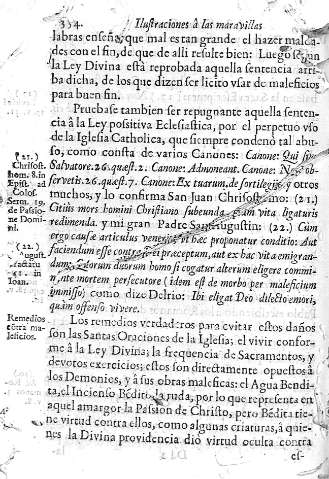 334. Ilustraciones à las maravillas
labras enseña, que mal es tan grande el hazer malda-
des con el fin, de que de alli resulte bien: Luego segun
la Ley Divina està reprobada aquella sentencia arri-
ba dicha, de los que dizen ser licito usar de maleficios
para buen fin.
Pruebase tambien ser repugnante aquella senten-
cia à la Ley positiva Eclesiastica, por el perpetuo vso
de la Iglesia Catholica, que siempre condenò tal abu-
so, como consta de varios Canones: Canone: Qui sine
Salvatore. 26. quæst. 2. Canone: Admoneant. Canone: Non ob-
servetis. 26. quæst. 7. Canone: Ex tuarum, de sortilegijs, y otros
muchos, y lo confirma San Juan Chrisostomo: (21.)
Citius mors homini Christiano subeunda, quam vita ligaturis
redimenda, y mi gran Padre San Augustin: (22.) Cum
ergo causæ articulus venerit, ut hæc proponatur conditio: Aut
faciendum esse contra Dei præceptum, aut ex hac vita emigran-
dum; quorum duorum homo si cogatur alterum eligere commi-
nante mortem persecutore (idem est de morbo per maleficium
immisso) como dize Delrio: Ibi eligat Deo dilecto emori,
quàm offenso vivere.
Los remedios verdaderos para evitar estos daños
son las Santas Oraciones de la Iglesia; el vivir confor-
me à la Ley Divina; la frequencia de Sacramentos, y
devotos exercicios; estos son directamente opuestos à
los Demonios, y à sus obras maleficas: el Agua Bendi-
ta, el Incienso Bẽdito, la ruda, por lo que representa en
aquel amargor la Passion de Christo, pero Bẽdita tie-
ne virtud contra ellos, como algunas criaturas, à quie-
nes la Divina providencia diò virtud oculta contra
es-
(21.)
Chrisost.
hom. 8. in
Epist. ad
Colos.
Serm. 19.
de Passio-
ne Domi-
ni.
(22.)
August.
tractatu
in
Ioan.
Remedios
contra ma-
leficios.